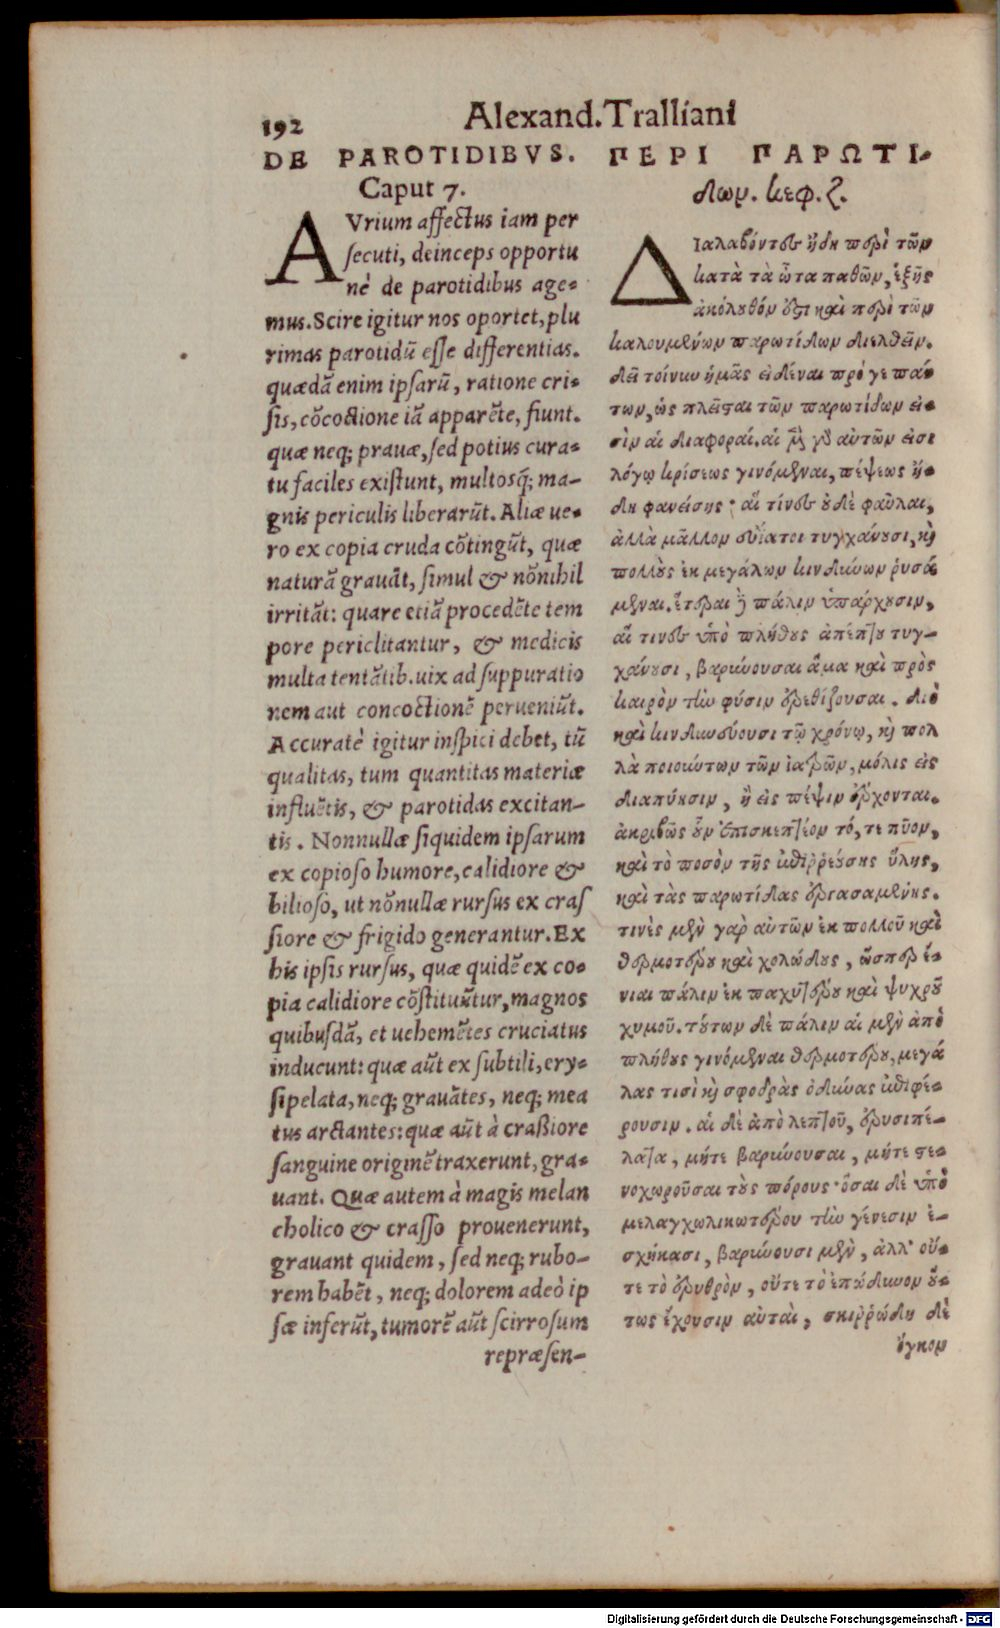 192
Alexand. Tralliani
DE PAROTIDIBVS.
Caput 7.
AVrium affectus iam per
secuti, deinceps opportu
nè de parotidibus age-
mus. Scire igitur nos oportet, plu
rimas parotidū esse differentias.
quædā enim ipsarū, ratione cri-
sis, cōcoctione iā apparēte, fiunt.
quæ neq; prauæ, sed potius cura-
tu faciles existunt, multosq́; ma-
gnis periculis liberarūt. Aliæ ue-
ro ex copia cruda cōtingūt, quæ
naturā grauāt, simul & nōnihil
irritāt: quare etiā procedēte tem
pore periclitantur, & medicis
multa tentātib. uix ad suppuratio
nem aut concoctionē perueniūt.
Accuratè igitur inspici debet, tū
qualitas, tum quantitas materiæ
influētis, & parotidas excitan-
tis. Nonnullæ siquidem ipsarum
ex copioso humore, calidiore &
bilioso, ut nōnullæ rursus ex cras
siore & frigido generantur. Ex
his ipsis rursus, quæ quidē ex co-
pia calidiore cōstituūtur, magnos
quibusdā, et uehemētes cruciatus
inducunt: quæ aūt ex subtili, ery-
sipelata, neq; grauātes, neq; mea
tus arctantes: quæ aūt à craßiore
sanguine originē traxerunt, gra-
uant. Quæ autem à magis melan
cholico & crasso prouenerunt,
grauant quidem, sed neq; rubo-
rem habēt, neq; dolorem adeò ip
sæ inferūt, tumorē aūt scirrosum
repræsen-
ΠΕΡΙ ΠΑΡΩΤΙ-
δων. κεφ. ζ.
Διαλαβόντες ἤδη περὶ τῶν
κατὰ τὰ ὦτα παθῶν, ἑξῆς
ἀκόλουθόν ἐστι καὶ περὶ τῶν
καλουμένων παρωτίδων διελθεῖν.
δεῖ τοίνυν ἡμᾶς εἰδέναι πρό γε πάν
των, ὡς πλεῖσται τῶν παρωτίδων εἰ-
σὶν αἱ διαφοραί. αἱ μὲν γὰρ αὐτῶν εἰσι
λόγῳ κρίσεως γινόμεναι, πέψεως ἤ-
δη φανείσης· αἵ τινες οὐδὲ φαῦλαι,
ἀλλὰ μᾶλλον εὐίατοι τυγχάνουσι, καὶ
πολλοὺς ἐκ μεγάλων κινδύνων ῥυσά
μεναι. ἕτεραι δὲ πάλιν ὑπάρχουσιν,
αἵ τινες ὑπὸ πλήθους ἀπέπτου τυγ-
χάνουσι, βαρύνουσαι ἅμα καὶ πρὸς
καιρὸν τὴν φύσιν ἐρεθίζουσαι. διὸ
καὶ κινδυνεύουσι τῷ χρόνῳ, καὶ πολ
λὰ ποιούντων τῶν ἰατρῶν, μόλις εἰς
διαπύησιν, ἢ εἰς πέψιν ἔρχονται.
ἀκριβῶς οὖν ἐπισκεπτέον τό, τε πῦον,
καὶ τὸ ποσὸν τῆς ἐπιῤῥεύσης ὕλης,
καὶ τὰς παρωτίδας ἐργασαμένης.
τινὲς μὲν γαρ αὐτῶν ἐκ πολλοῦ καὶ
θερμοτέρου καὶ χολώδους, ὥσπερ ἔ-
νιαι πάλιν ἐκ παχυτέρου καὶ ψυχροῦ
χυμοῦ. τούτων δὲ πάλιν αἱ μὲν ἀπὸ
πλήθους γινόμεναι θερμοτέρου, μεγά
λας τισὶ καὶ σφοδρὰς ὀδύνας ἐπιφέ-
ρουσιν. αἱ δὲ ἀπὸ λεπτοῦ, ἐρυσιπέ-
λατα, μήτε βαρύνουσαι, μήτε στε-
νοχωροῦσαι τοὺς πόρους· ὅσαι δὲ ὑπὸ
μελαγχωλικωτέρου τὴν γένεσιν ἐ-
σχήκασι, βαρύνουσι μὲν, ἀλλ' οὔ-
τε τὸ ἐρυθρὸν, οὔτε τὸ ἐπώδυνον οὕ-
τως ἔχουσιν αὐταὶ, σκιῤῥώδη δὲ
ὄγκον
Digitalisierung gefördert durch die Deutsche Forschungsgemeinschaft - DFG